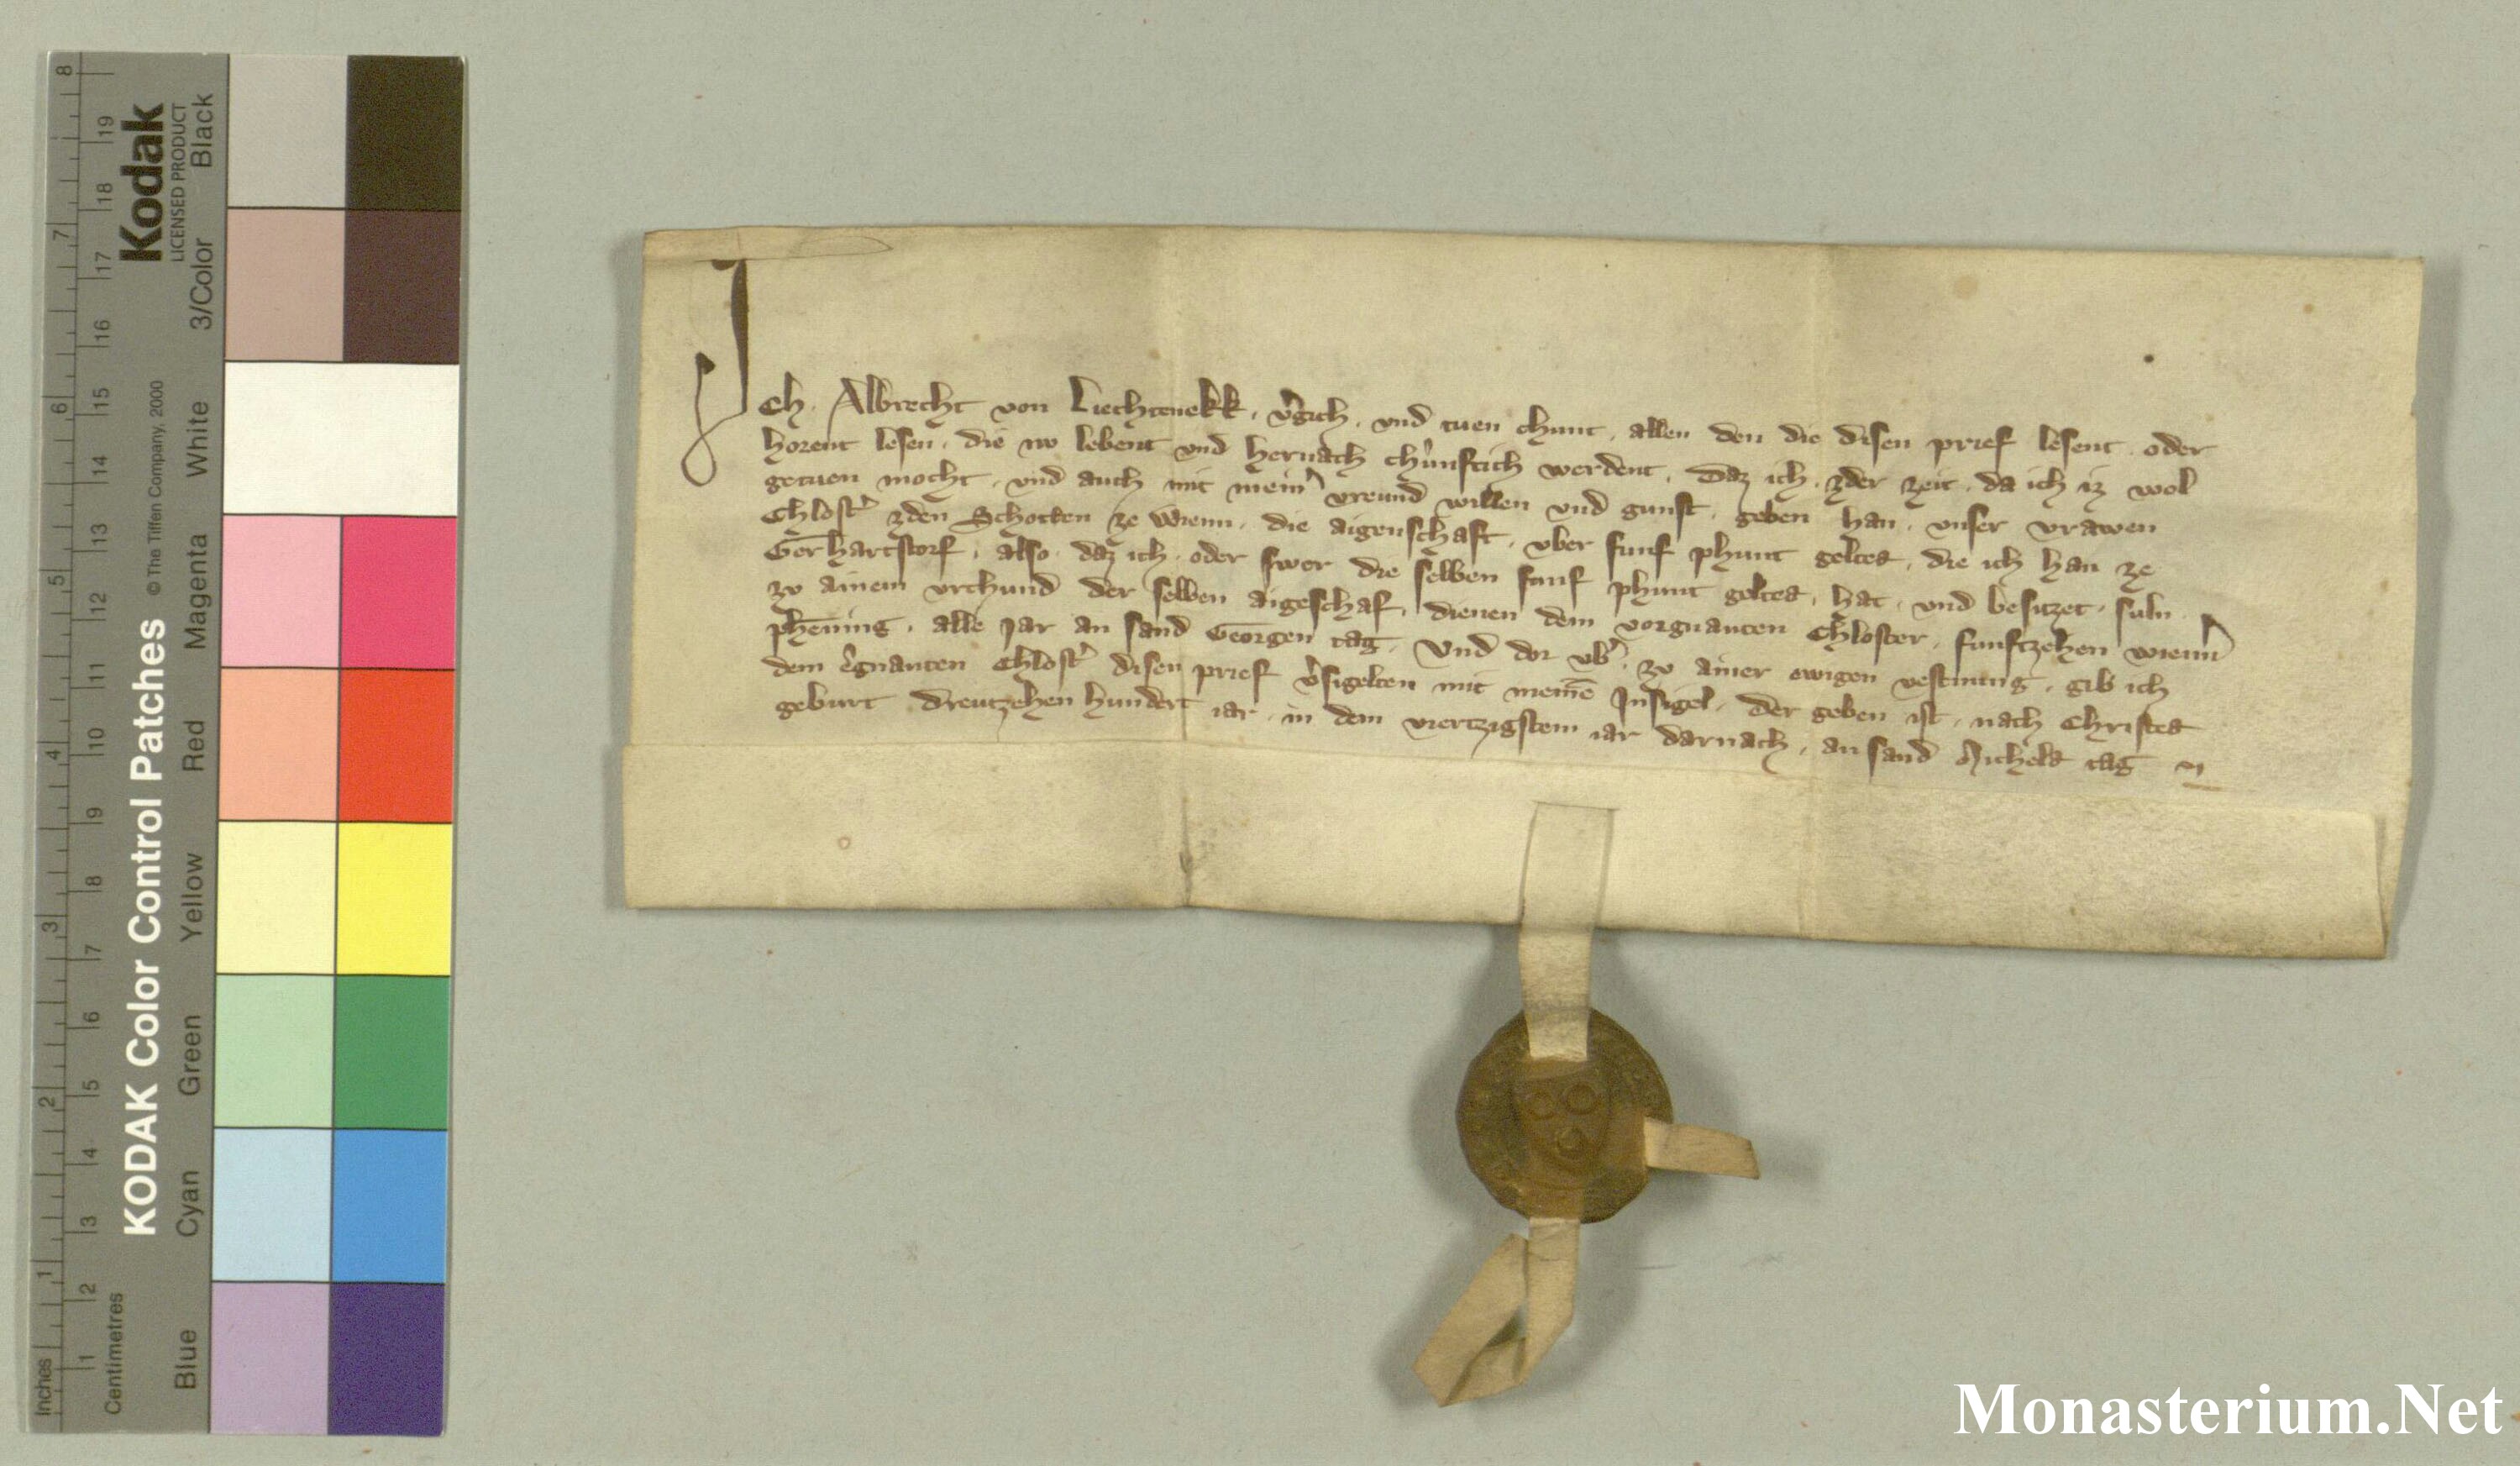 Ich . Albrecht von Liechtenekk . v̾gich . vnd tuen chunt . allen den die disen prief lesent oder
horent lesen . die nv lebent vnd hernach chůnftich werdent . Daz ich . zder zeit . da ich iz wol
getuen mocht . vnd auch mit mein̾ vreund willen vnd gunst . geben han . vnser vrawen
Chlost̾ zden Schotten ze Wienn . die aigenschaft . vber funf phunt geltes . die ich han ze
Gerhartstorf . also . daz ich . oder swer die selben funf phunt geltes . hat . vnd besitzet . suln .
zv ainem vrchund der selben aigeschaf . dienen dem vorgnanten Chloster . funftzehen wienn̾
phēning . alle Jar an sand Georgen tag . Vnd dar vb̾ . zv ainer ewigen vestnung . gib ich
dem egnanten Chlost̾ disen prief v̾sigelten mit meinē Insigel . Der geben ist . nach Christes
geburt Dreutzehen hundert iar . in dem viertzigstem iar darnach . an sand Michels tag
KODAK Color Control Patches
© The Tiffen Company, 2000
Kodak
LICENSED PRODUCT
Blue Cyan Green Yellow Red Magenta White 3/Color Black
Inches 1 2 3 4 5 6 7 8
Centimetres 1 2 3 4 5 6 7 8 9 10 11 12 13 14 15 16 17 18 19
Monasterium.Net